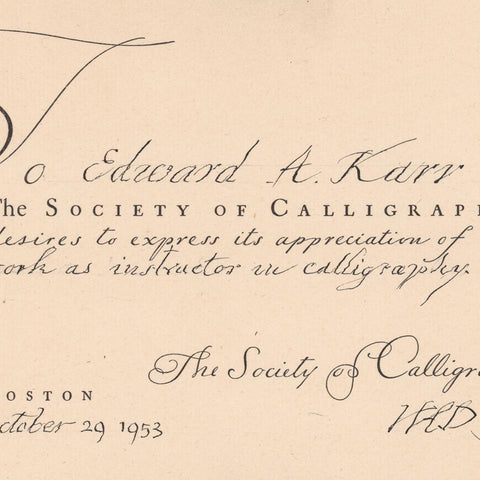 To Edward A. Karr
The SOCIETY OF CALLIGRAP
desires to express its appreciation of
work as instructor in calligraphy.
The Society of Calligra
BOSTON
October 29 1953
WAD